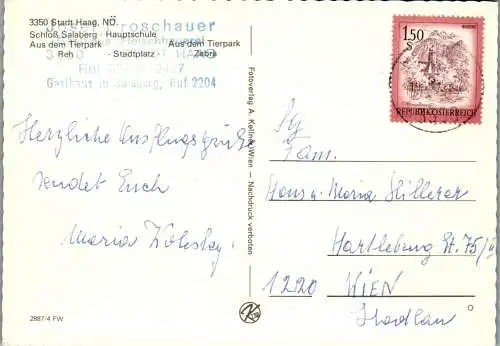 3350 Stadt Haag, NÖ
Schloß Salaberg - Hauptschule
Aus dem Tierpark Aus dem Tierpark
Reh - Stadtplatz - Zebra
Gasthaus in Salaberg, Ruf 2204
Herzliche Ausflugsgrüße
sendet Euch
Maria
2887/4 FW
Fotoverlag A. Kellner, Wien — Nachdruck verboten
1.50
S
REPUBLIK ÖSTERREICH
Fam.
Hans u. Maria Hillerer
Hartlebeng. 75/
1220 WIEN
Stadlau